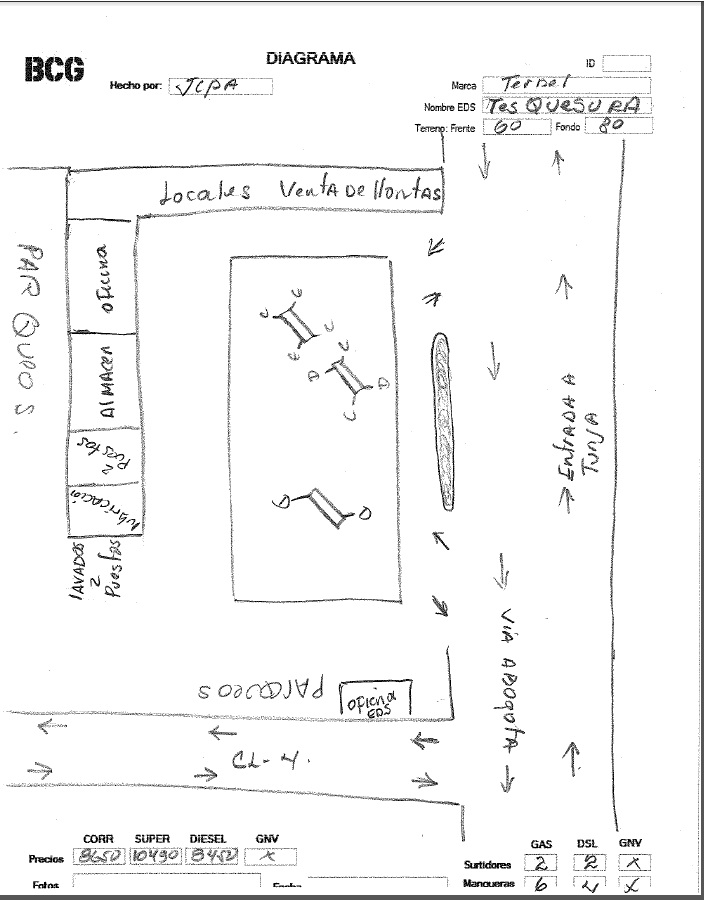 BCG
DIAGRAMA
ID
Hecho por: JCPA
Marca Terpel
Nombre EDS Tes QUESURA
Terreno: Frente 60 Fondo 80
Locales Venta De llantas
PARQueos.
oficina
AlMAcen
2 Puestos
lubricación
lAVADOS
2
Puestos
C C
C C
C
D D
C
D D
Entrada A
Tunja
Vía A Bogota
PARQueos
oficina
EDS
CL-4.
CORR SUPER DIESEL GNV
Precios 8650 10490 8450 X
Fotos
Fecha
GAS DSL GNV
Surtidores 2 2 X
Mangueras 6 4 X